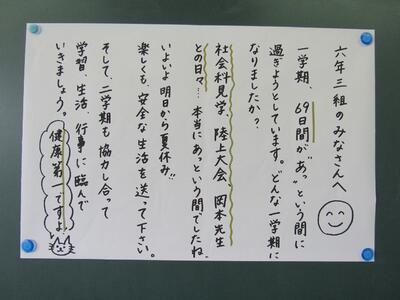 六年三組のみなさんへ
一学期、69日間が“あっ”という間に
過ぎようとしています。どんな一学期に
なりましたか？
社会科見学、陸上大会、岡本先生
との日々…本当にあっという間でしたね。
いよいよ明日から“夏休み”
楽しくも、安全な生活を送って下さい。
そして、二学期も協力し合って
学習、生活、行事に臨んで
いきましょう。
健康第一ですよ